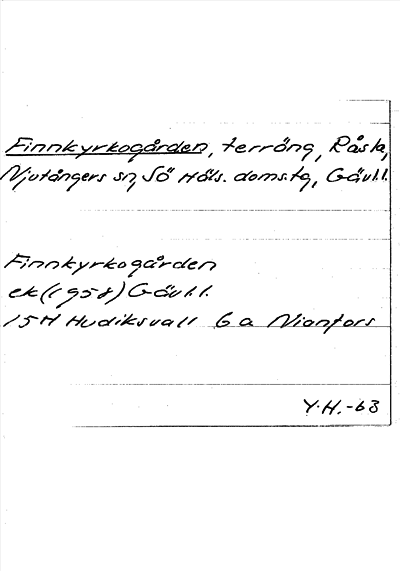 Finnkyrkogården, terräng, Råsta,
Njutångers sn, Sö Häls. doms.tg, Gävl.l.
Finnkyrkogården
ek (1958) Gävl.l.
15H Hudiksvall 6a Nianfors
Y.H.-63